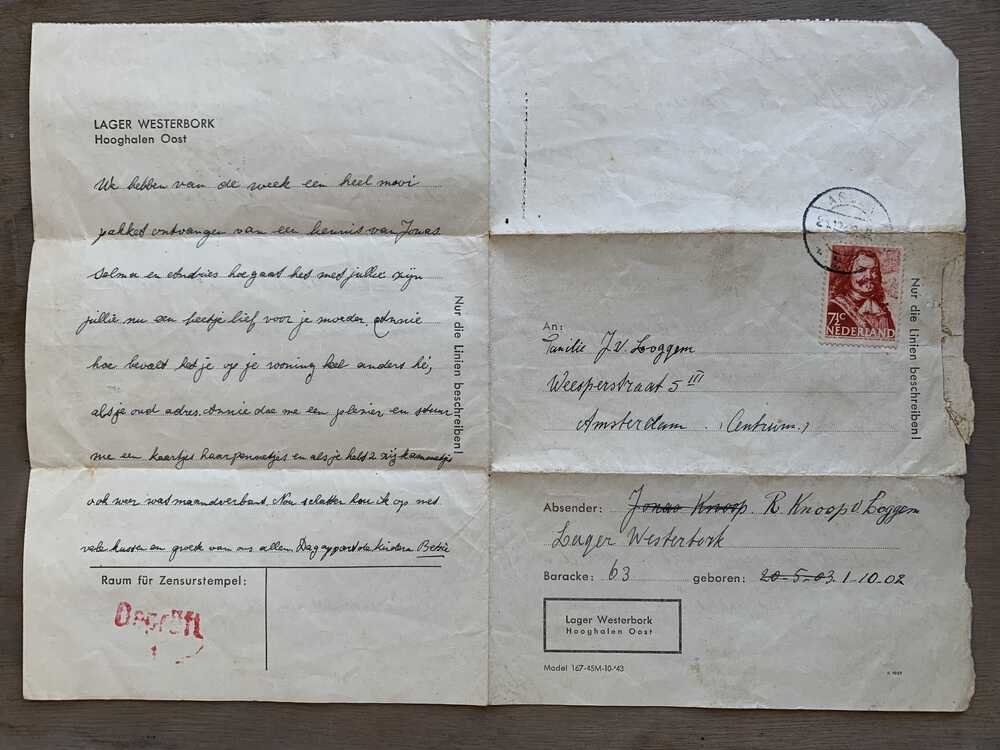 LAGER WESTERBORK
Hooghalen Oost
We hebben van de week een heel mooi
pakket ontvangen van een kennis van Jonas
Selma en Andries hoe gaat het met jullie zijn
jullie nu een beetje lief voor je moeder. Annie
hoe bevalt het je op je woning heel anders hé,
als je oud adres. Annie doe me een plezier en stuur
me een kaartje haarpennetjes en als je hebt 2 zij kammetjes
ook weer wat maandverband. Nou schatten hou ik op met
vele kussen en groete van ons allem Dag Betsie
Nur die Linien beschreiben!
Raum für Zensurstempel:
Geprüft
ASSEN
7½C
NEDERLAND
Nur die Linien beschreiben!
An:
Familie J. v. Loggem
Weesperstraat 5 III
Amsterdam. (Centrum.)
Absender: Jonas Knoop. R Knoop v Loggem
Lager Westerbork
Baracke: 63 geboren: 20-5-03. 1-10-02
Lager Westerbork
Hooghalen Oost
Model 167-45M-10-'43